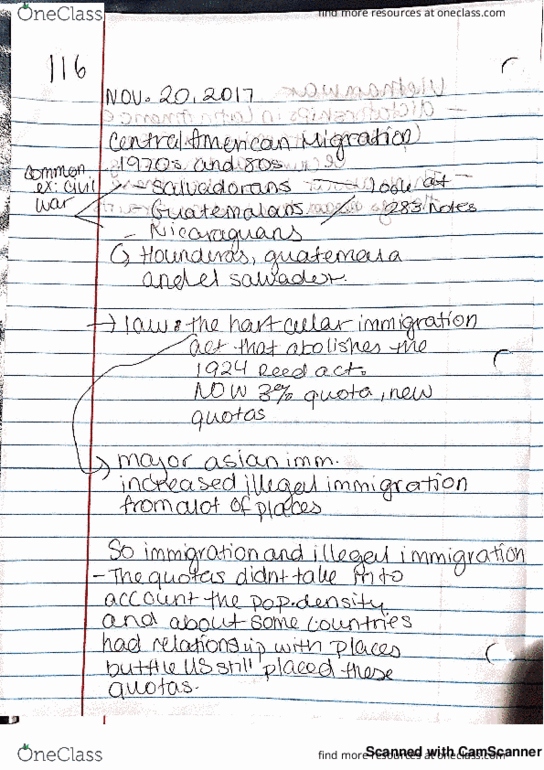 OneClass
find more resources at oneclass.com
116
NOV. 20, 2017
Central American Migration
1970s and 80s
common
ex: civil
war
- Salvadorans
look at
- Guatemalans
283 notes
- Nicaraguans
↳ Hounderas, guatemala
and el salvador.
→ law: the hart cellar immigration
act that abolishes the
1924 Reed act.
NOW 3% quota, new
quotas
major asian imm.
increased illegal immigration
from alot of places
So immigration and illegal immigration
- The quotas didnt take into
account the pop. density
and about some countries
had relationship with places
but the US still placed these
quotas.
OneClass
find more resources at oneclass.com
Scanned with CamScanner